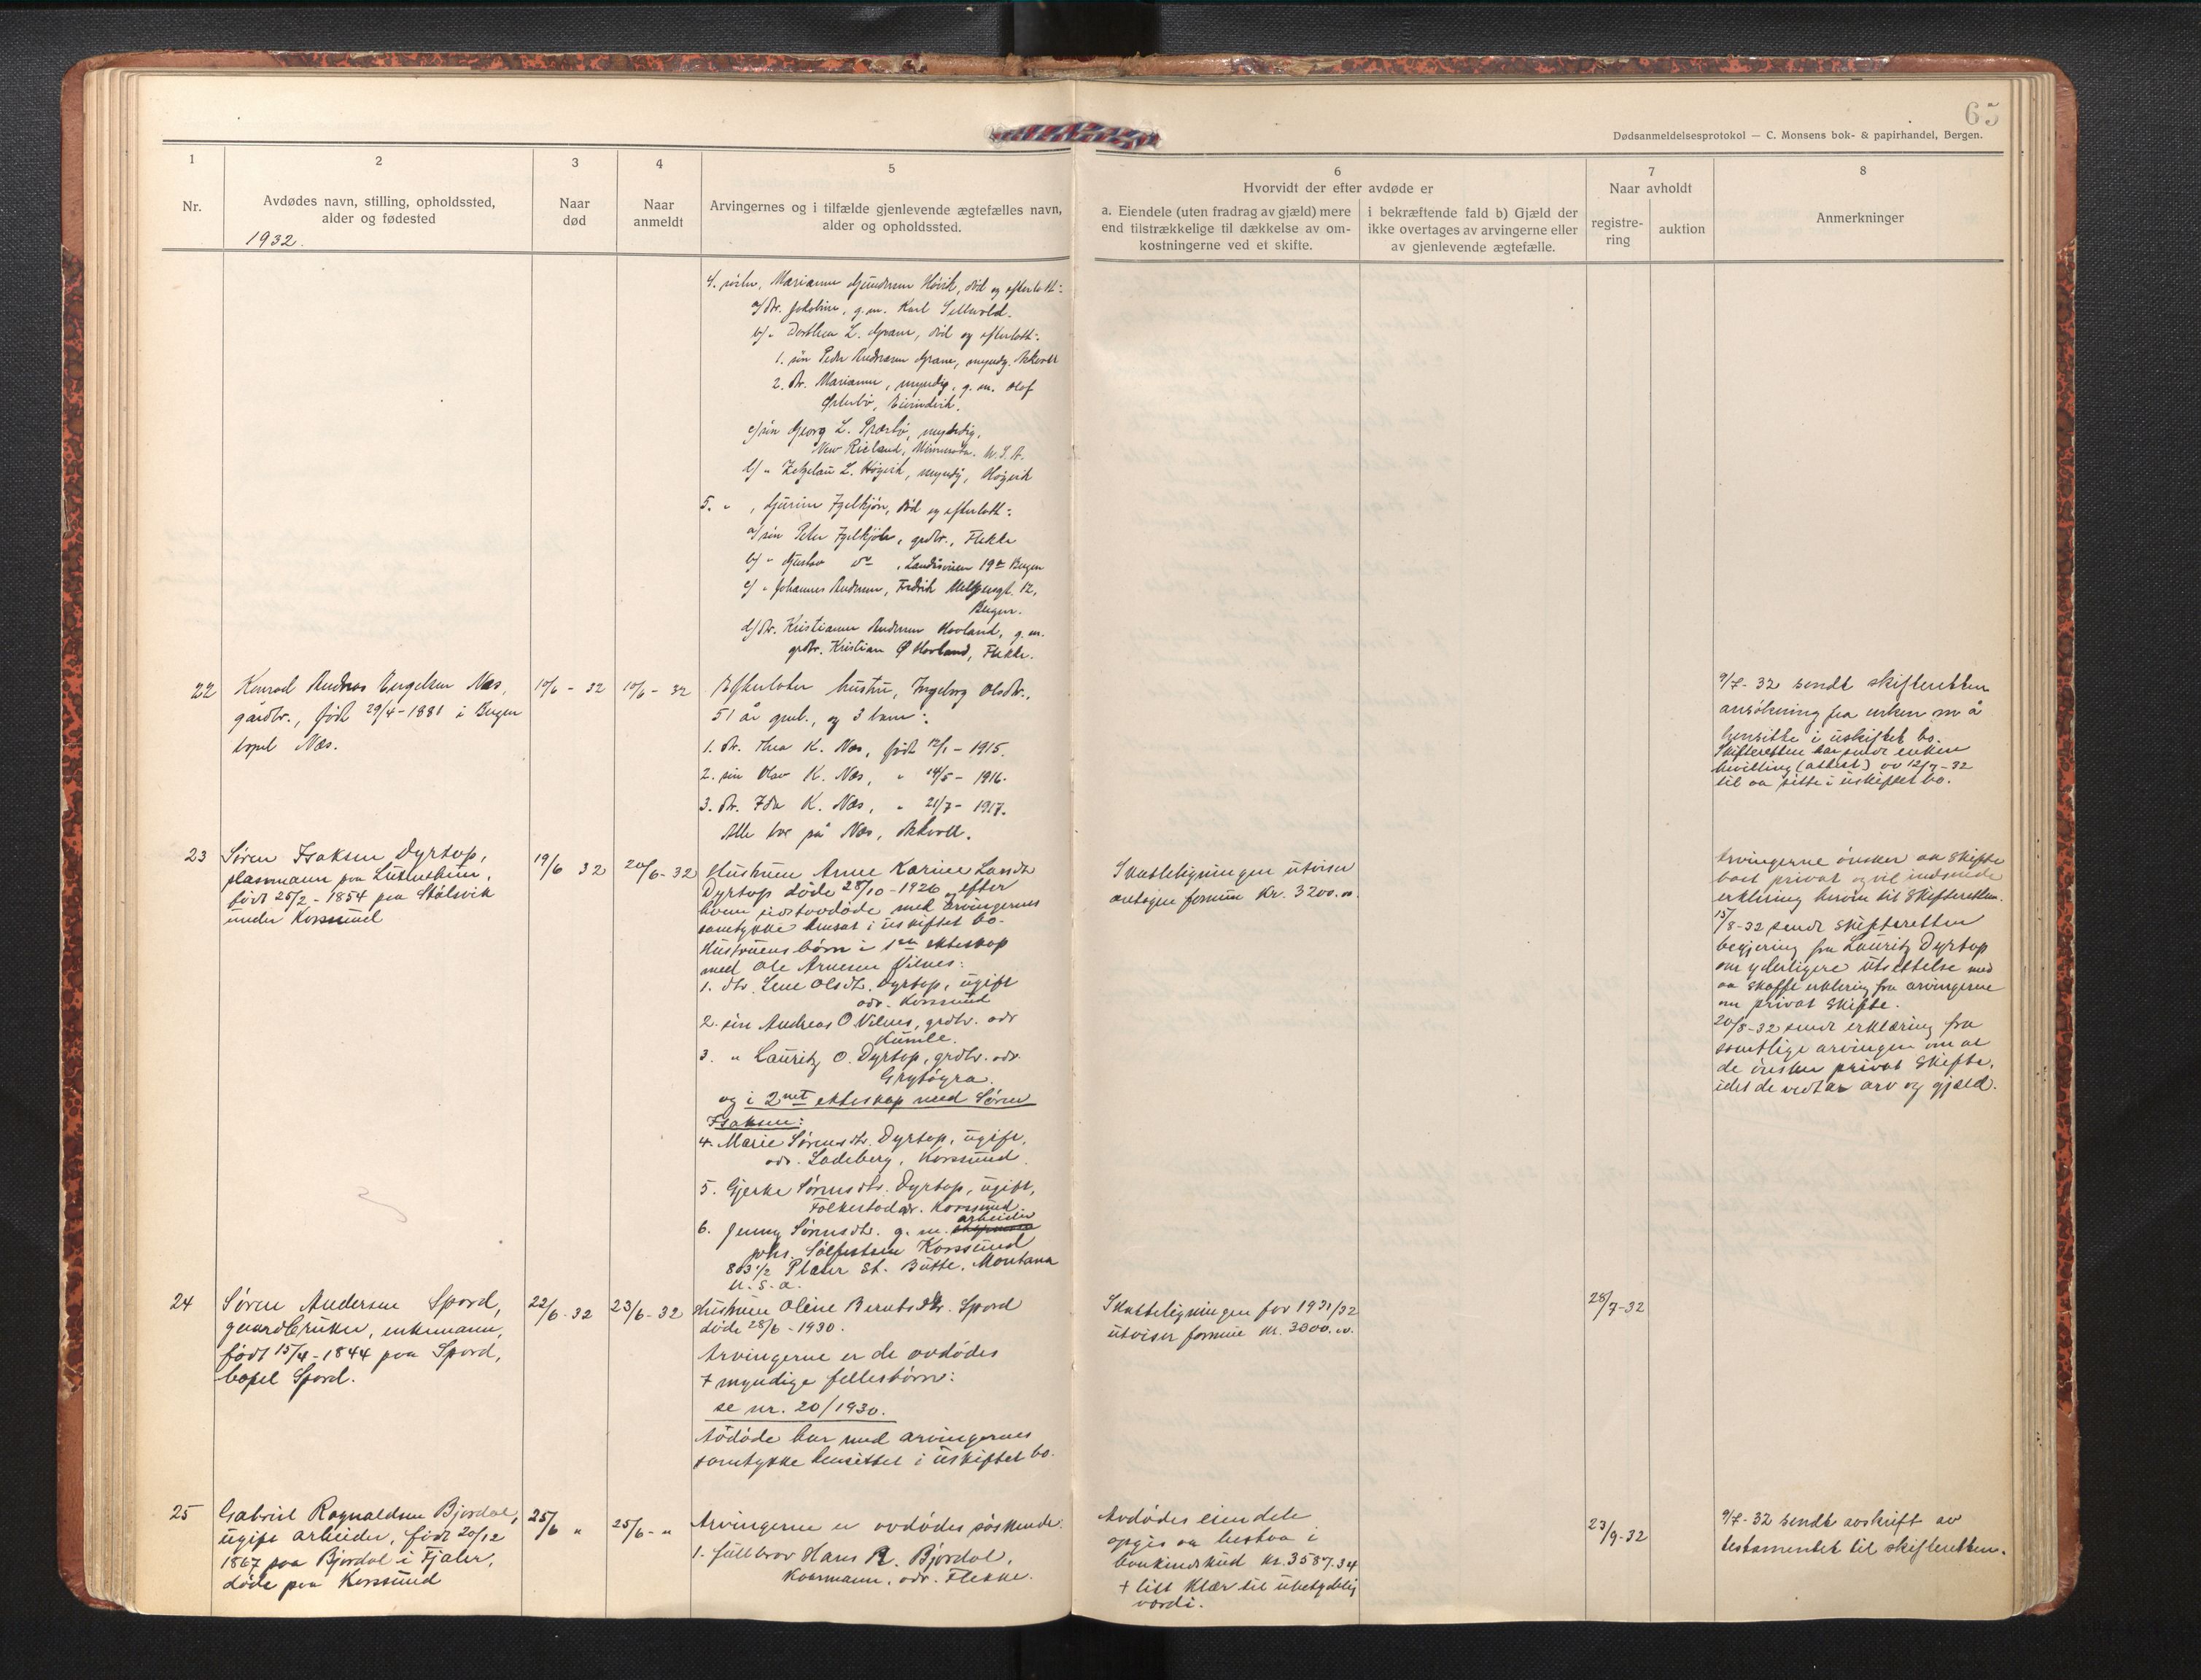 65
Dødsanmeldelsesprotokol — C. Monsens bok- & papirhandel, Bergen.
1
2
3
4
5
6
7
8
Nr.
Avdødes navn, stilling, opholdssted,
alder og fødested
1932.
Naar
død
Naar
anmeldt
Arvingernes og i tilfælde gjenlevende ægtefælles navn,
alder og opholdssted.
Hvorvidt der efter avdøde er
a. Eiendele (uten fradrag av gjæld) mere
end tilstrækkelige til dækkelse av om-
kostningerne ved et skifte.
i bekræftende fald b) Gjæld der
ikke overtages av arvingerne eller
av gjenlevende ægtefælle.
Naar avholdt
registre-
ring
auktion
Anmerkninger
4. søster, Marianne Høvik, død og efterlatt:
a/ dtr. Jakobine, g.m. Karl
b/ " Dorthea L. Grane, død og efterlatt:
1. søn Peder Andreassen Grane, myndig, Askvoll
2. dtr. Marianne, myndig, g.m. Olaf
Østerbø, Eivindvik.
c/ søn Georg L. myndig,
New Minnesota. U.S.A.
d/ " L. Høgvik, myndig, Høgvik
5. " , død og efterlatt:
a/ søn Peter grdbr., Flekke
b/ " Gustav do , 19 Bergen
c/ " Johannes Andersen, Fredrik Meltzersgt. 12,
Bergen.
d/ dtr. Kristianne Andersen Hovland, g.m.
grdbr. Kristian Ø Hovland, Flekke.
22
Konrad Andreas Engelsen Næs,
gårdbr., født 29/4-1881 i Bergen
bopel Næs.
10/6 - 32
10/6 - 32
Efterlater hustru, Ingeborg Olsdtr.,
51 år gml., og 3 barn:
1. dtr. Thea K. Næs, født 12/1 - 1915.
2. søn Olav K. Næs, " 14/5 - 1916.
3. dtr. Ida K. Næs, " 21/7 - 1917.
Alle bor på Næs, Askvoll.
9/7-32 sendt skifteretten
ansøkning fra enken om å
hensitte i uskiftet bo.
Skifteretten har sendt enken
bevilling (attest) av 12/7-32
til aa sitte i uskiftet bo.
23
Søren Isaksen Dyrtop,
plassmann paa
født 25/2 - 1854 paa Stølsvik
under Korssund
19/6 32
20/6-32
Hustruen Anne Karine Larsdtr
Dyrtop døde 28/10-1926, efter
hvem sidstavdøde med arvingernes
samtykke hensat i uskiftet bo.
Hustruens børn i 1ste ekteskap
med Ole Arnesen Vilnes:
1. dtr. Lene Olsdtr. Dyrtop, ugift
adr. Korssund
2. søn Andreas O Vilnes, grdbr. adr
Kumle.
3. " Lauritz O. Dyrtop, grdbr. adr.
Grytøyra.
og i 2net ekteskap med Søren
Isaksen:
4. Marie Sørensdtr. Dyrtop, ugift,
adr. Ladeberg, Korssund.
5. Gjerke Sørensdtr. Dyrtop, ugift,
Folkestad adr. Korssund
6. Jenny Sørensdtr. g.m. arbeider
Johs. Korssund
803 1/2 St. Butte, Montana
U.S.A.
Skatteligningen utviser
antagen formue Kr. 3200.00
Arvingerne ønsker aa skifte
boet privat og vil indsende
erklæring herom til Skifteretten.
15/8-32 sendt Skifteretten
begjæring fra Lauritz Dyrtop
om yderligere utsettelse med
aa skaffe erklæring fra arvingerne
om privat skifte.
20/8-32 sendt erklæring fra
samtlige arvinger om at
de ønsker privat skifte,
idet de vedtar arv og gjæld.
24
Søren Andersen Spord,
gaardbruker, enkemann,
født 15/4-1844 paa Spord,
bopel Spord.
22/6-32
23/6-32
Hustruen Oline Berntsdtr. Spord
døde 28/6 - 1930.
Arvingerne er de avdødes
7 myndige fellesbørn:
se nr. 20/1930.
Avdøde har med arvingernes
samtykke hensittet i uskiftet bo.
Skatteligningen for 1931/32
utviser formue kr. 3000.00.
28/7-32
25
Gabriel Ragnaldsen Bjordal,
ugift arbeider, født 20/12
1867 paa Bjordal i Fjaler,
døde paa Korssund
25/6 "
25/6 - "
Arvingerne er avdødes søskende.
1. fullbror Hans R. Bjordal,
kaarmann, adr. Flekke.
Avdødes eiendele
opgis aa bestaa i
bankindskud kr. 3587.34
+ litt klær til ubetydelig
værdi.
23/9-32
9/7-32 sendt avskrift av
testamentet til skifteretten.